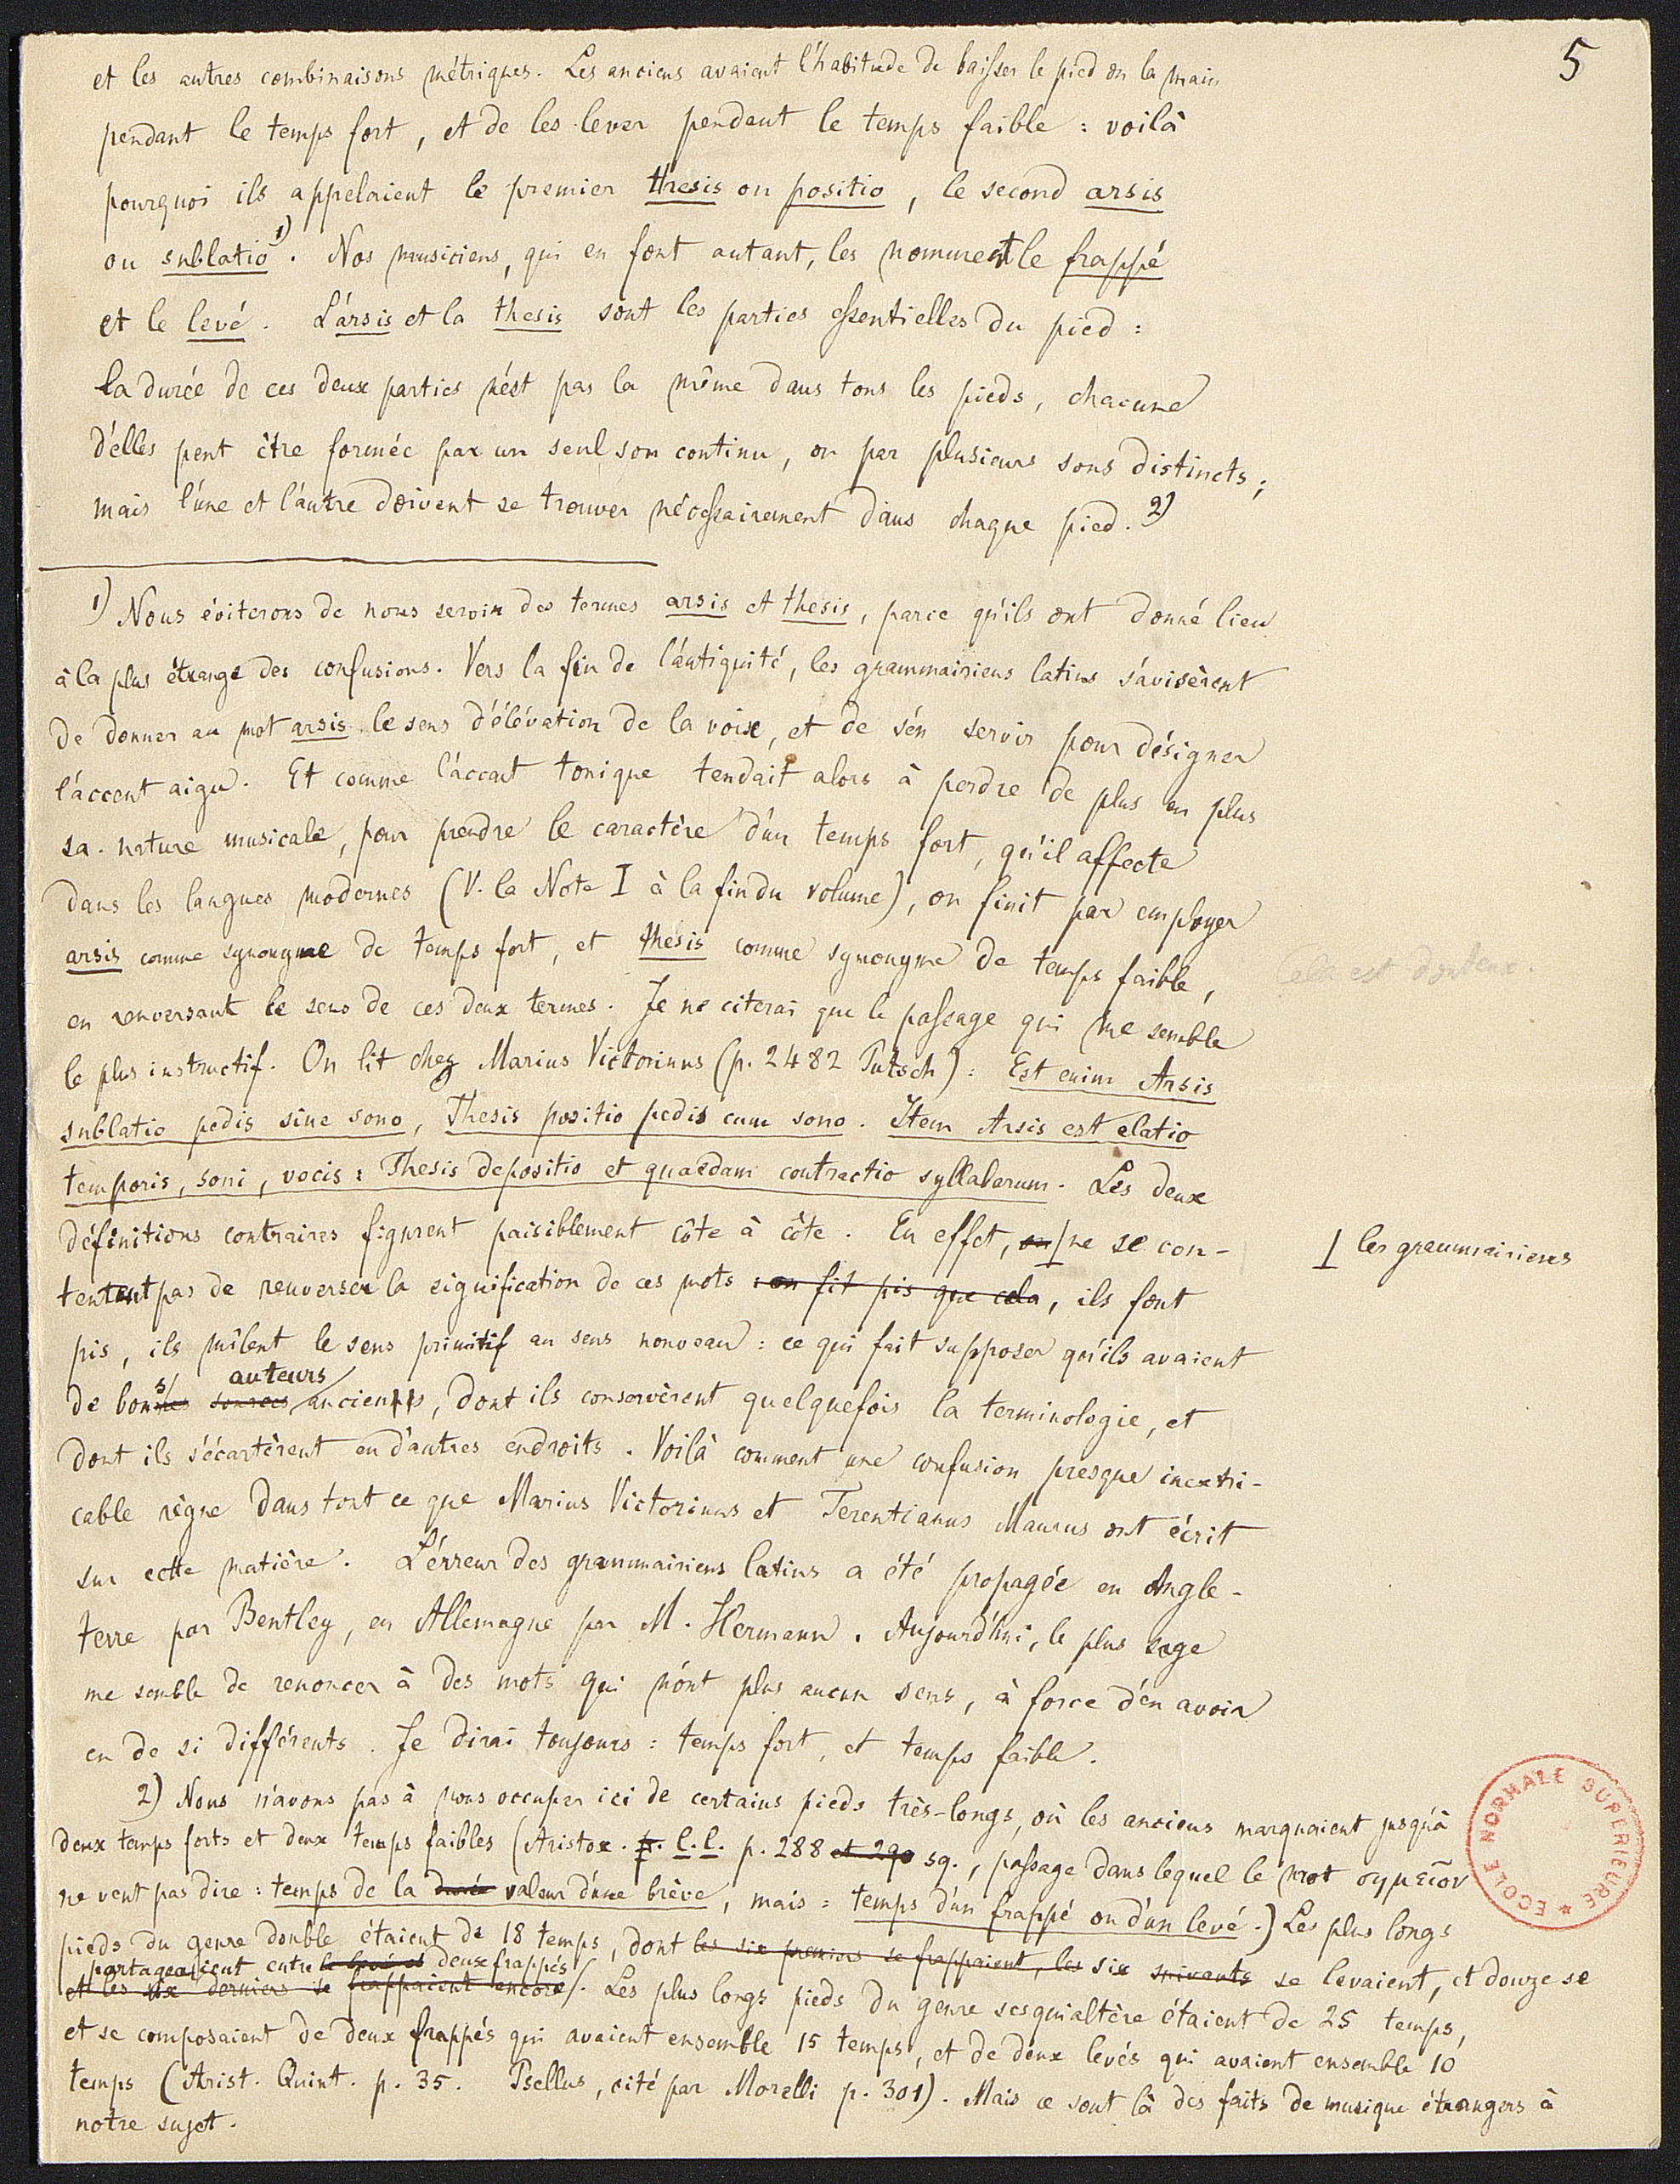 5
et les autres combinaisons métriques. Les anciens avaient l'habitude de baisser le pied ou la main
pendant le temps fort, et de les lever pendant le temps faible : voilà
pourquoi ils appelaient le premier thesis ou positio, le second arsis
ou sublatio 1). Nos musiciens, qui en font autant, les nomment le frappé
et le levé. L'arsis et la thesis sont les parties essentielles du pied :
la durée de ces deux parties n'est pas la même dans tous les pieds, chacune
d'elles peut être formée par un seul son continu, ou par plusieurs sons distincts ;
mais l'une et l'autre doivent se trouver nécessairement dans chaque pied. 2)
1) Nous éviterons de nous servir des termes arsis et thesis, parce qu'ils ont donné lieu
à la plus étrange des confusions. Vers la fin de l'antiquité, les grammairiens latins s'avisèrent
de donner au mot arsis le sens d'élévation de la voix, et de s'en servir pour désigner
l'accent aigu. Et comme l'accent tonique tendait alors à perdre de plus en plus
sa nature musicale, pour prendre le caractère d'un temps fort, qu'il affecte
dans les langues modernes (V. la Note I à la fin du volume), on finit par employer
arsis comme synonyme de temps fort, et thesis comme synonyme de temps faible,
Cela est douteux.
en renversant le sens de ces deux termes. Je ne citerai que le passage qui me semble
le plus instructif. On lit chez Marius Victorinus (p. 2482 Putsch) : Est enim Arsis
sublatio pedis sine sono, Thesis positio pedis cum sono. Item Arsis est elatio
temporis, soni, vocis : Thesis depositio et quaedam contractio syllabarum. Les deux
définitions contraires figurent paisiblement côte à côte. En effet, on ne se con-
les grammairiens
tentent pas de renverser la signification de ces mots : on fit pis que cela, ils font
pis, ils mêlent le sens primitif au sens nouveau : ce qui fait supposer qu'ils avaient
auteurs
de bons sources anciens, dont ils conservèrent quelquefois la terminologie, et
dont ils s'écartèrent en d'autres endroits. Voilà comment une confusion presque inextri-
cable règne dans tout ce que Marius Victorinus et Terentianus Maurus ont écrit
sur cette matière. L'erreur des grammairiens latins a été propagée en Angle-
terre par Bentley, en Allemagne par M. Hermann. Aujourd'hui, le plus sage
me semble de renoncer à des mots qui n'ont plus aucun sens, à force d'en avoir
eu de si différents. Je dirai toujours : temps fort, et temps faible.
2) Nous n'avons pas à nous occuper ici de certains pieds très-longs, où les anciens marquaient jusqu'à
deux temps forts et deux temps faibles (Aristox. l.l. p. 288 et 290 sq., passage dans lequel le mot σημεῖον
ne veut pas dire : temps de la durée valeur d'une brève, mais : temps d'un frappé ou d'un levé.) Les plus longs
pieds du genre double étaient de 18 temps, dont les six premiers se frappaient, les six suivants se levaient, et douze se
partageaient entre le levé et deux frappés
et les six derniers se frappaient encore. Les plus longs pieds du genre sesquialtère étaient de 25 temps,
et se composaient de deux frappés qui avaient ensemble 15 temps, et de deux levés qui avaient ensemble 10
temps (Arist. Quint. p. 35. Psellus, cité par Morelli p. 301). Mais ce sont là des faits de musique étrangers à
notre sujet.
ECOLE NORMALE SUPERIEURE